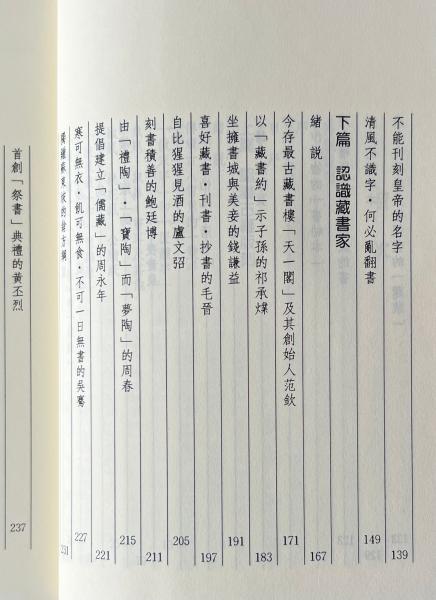 不能刊刻皇帝的名字 139
清風不識字·何必亂翻書 149
下篇 認識藏書家
緒說 167
今存最古藏書樓「天一閣」及其創始人范欽 171
以「藏書約」示子孫的祁承㸁 183
坐擁書城與美妾的錢謙益 191
喜好藏書·刊書·抄書的毛晉 197
自比猩猩見酒的盧文弨 205
刻書積善的鮑廷博 211
由「禮陶」·「寶陶」而「夢陶」的周春 215
提倡建立「儒藏」的周永年 221
寒可無衣·飢可無食·不可一日無書的吳騫 227
231
首創「祭書」典禮的黃丕烈 237